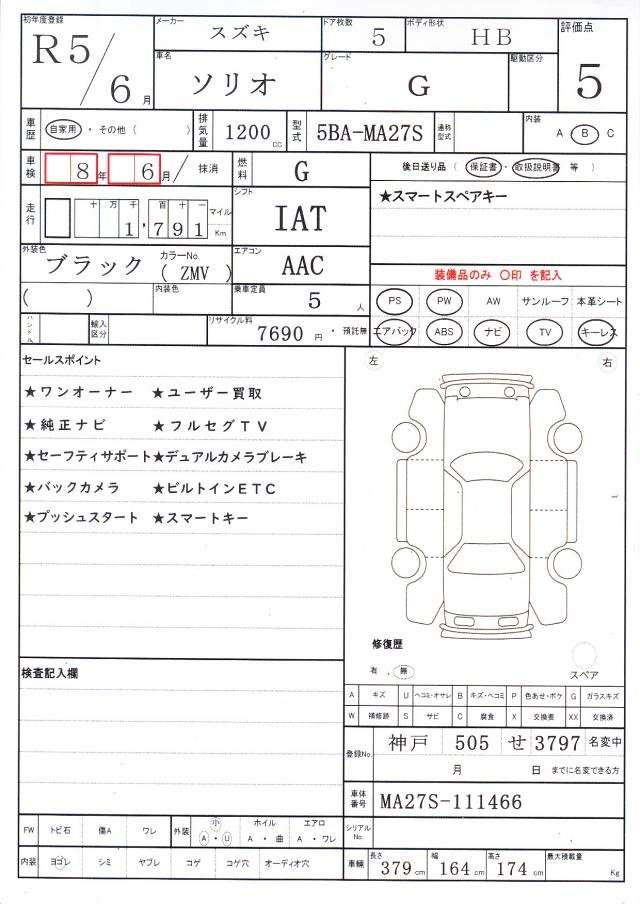 初年度登録 メーカー スズキ ドア枚数 5 ボディ形状 HB 評価点
R5/6月 車名 ソリオ グレード G 駆動区分 5
車歴 自家用 ・ その他 ( ) 排気量 1200cc 型式 5BA-MA27S 通称型式 内装 A ・ B C
車検 8年 6月 / 抹消 燃料 G 後日送り品 ( 保証書 ・ 取扱説明書 等 )
走行 十 万 千 百 十 一 マイル シフト ★スマートスペアキー
1,791 Km IAT
外装色 ブラック カラーNo. (ZMV) エアコン AAC 装備品のみ 〇印 を記入
( ) 内装色 乗車定員 5人 PS PW AW サンルーフ 本革シート
ハンドル 輸入区分 リサイクル料 7690円 ・ 預託無 エアバック ABS ナビ TV キーレス
セールスポイント 左 右
★ワンオーナー ★ユーザー買取
★純正ナビ ★フルセグTV
★セーフティサポート★デュアルカメラブレーキ
★バックカメラ ★ビルトインETC
★プッシュスタート ★スマートキー
修復歴
有 . 無 スペア
検査記入欄
A キズ U ヘコミ・オサレ B キズ・ヘコミ P 色あせ・ボケ G ガラスキズ
W 補修跡 S サビ C 腐食 X 交換要 XX 交換済
登録No. 神戸 505 せ 3797 名変中
月 日 までに名変できる方
車体番号 MA27S-111466
FW トビ石 傷A ワレ 外装 小 A ・ U ホイル A ・ 曲 エアロ A ・ ワレ シリアルNo.
内装 ヨゴレ シミ ヤブレ コゲ コゲ穴 オーディオ穴 車輌 長さ 379cm 幅 164cm 高さ 174cm 最大積載量 Kg